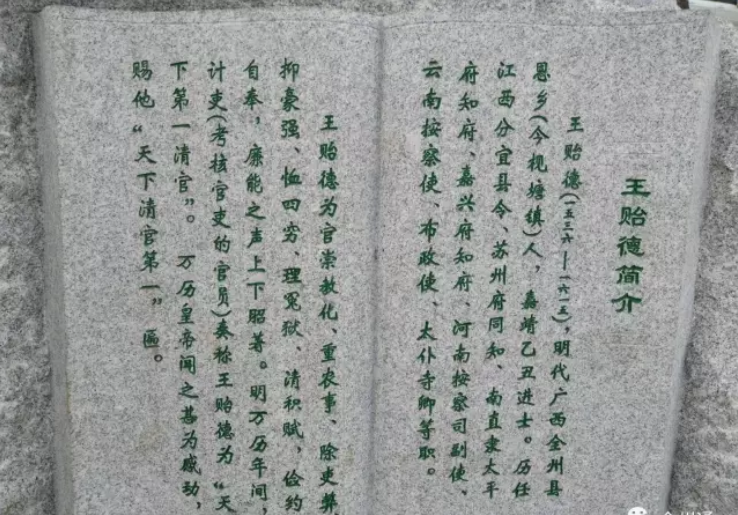 王贻德简介
王贻德(一五三六—一六一五),明代广西全州县
恩乡(今枧塘镇)人,嘉靖乙丑进士。历任
江西分宜县令、苏州府同知、南直隶太平
府知府、嘉兴府知府、河南按察司副使、
云南按察使、布政使、太仆寺卿等职。
王贻德为官崇教化、重农事、除吏弊、
抑豪强、恤四穷、理冤狱、清积赋,俭约
自奉,廉能之声上下昭著。明万历年间,
计吏(考核官吏的官员)奏称王贻德为“天
下第一清官”。万历皇帝闻之甚为感动,
赐他“天下清官第一”匾。